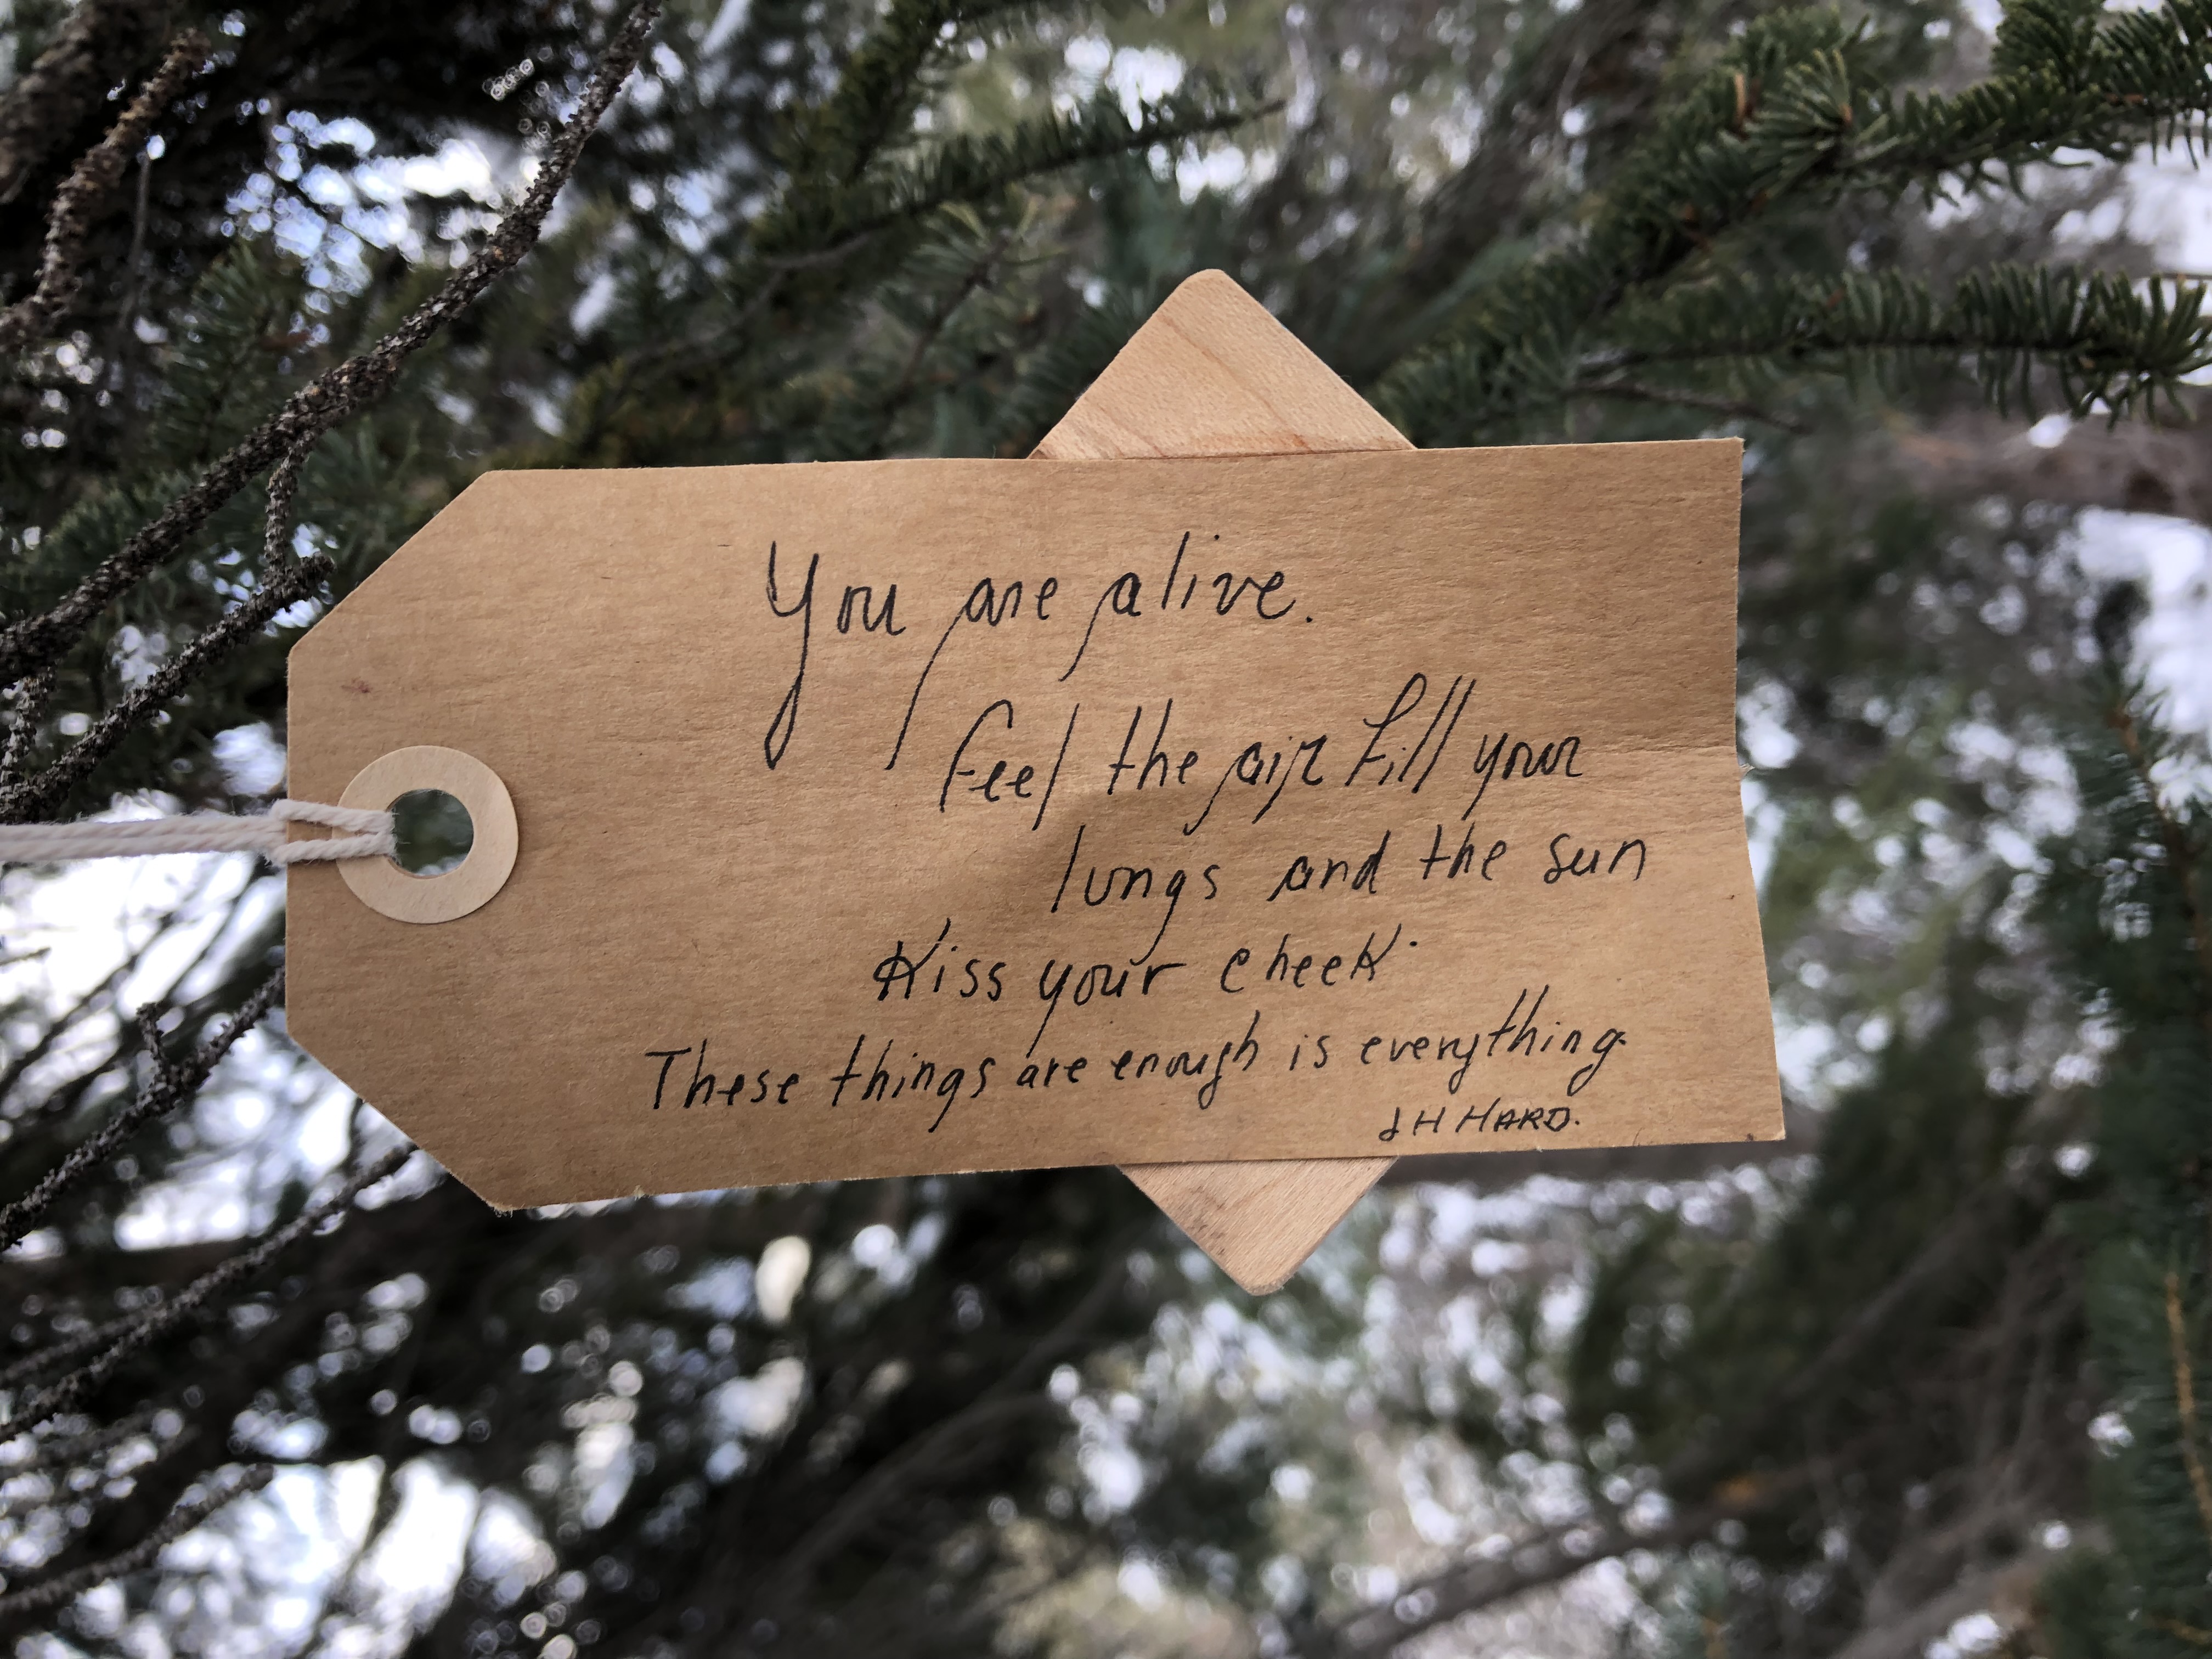 You are alive.
Feel the air fill your
lungs and the sun
kiss your cheek.
These things are enough is everything
J H HARD.